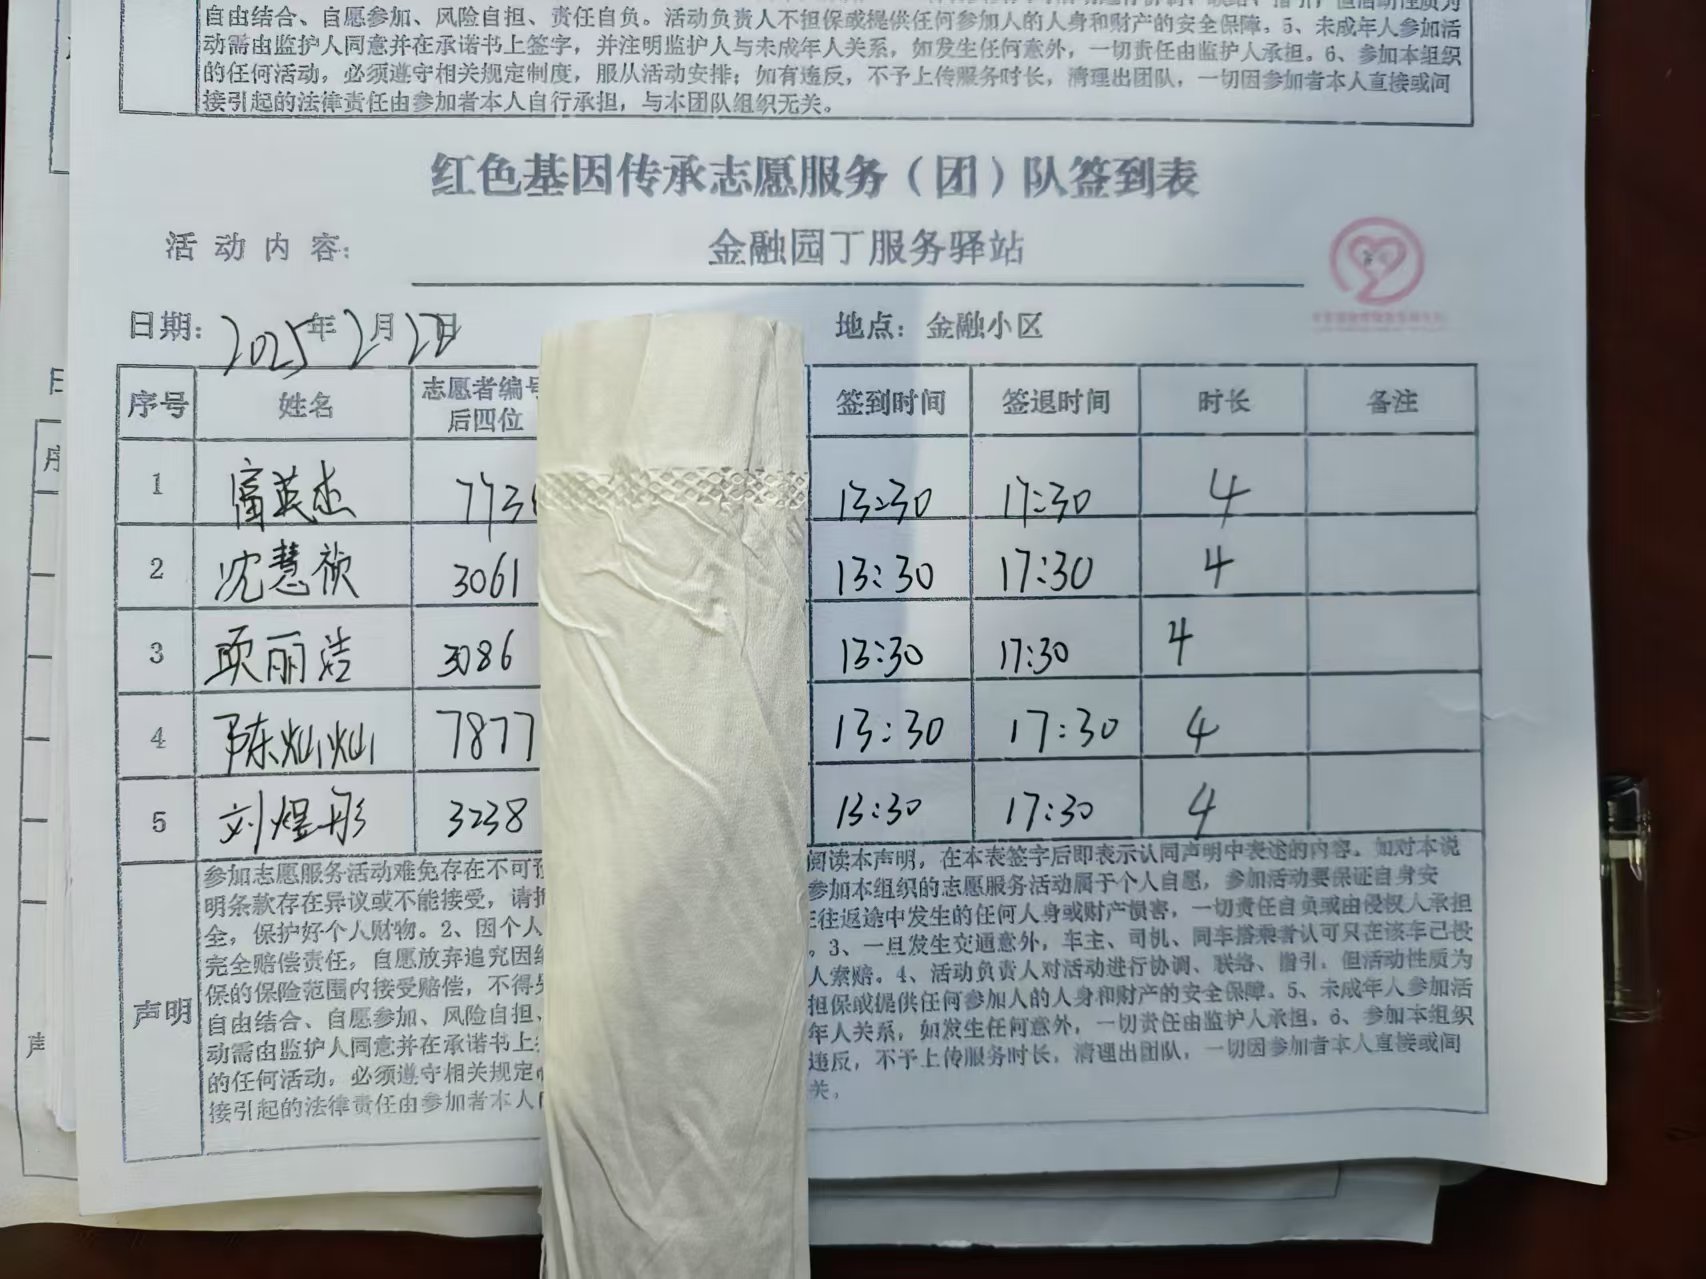 自由结合、自愿参加、风险自担、责任自负。活动负责人不担保或提供任何参加人的人身和财产的安全保障。5、未成年人参加活
动需由监护人同意并在承诺书上签字，并注明监护人与未成年人关系，如发生任何意外，一切责任由监护人承担。6、参加本组织
的任何活动，必须遵守相关规定制度，服从活动安排；如有违反，不予上传服务时长，清理出团队，一切因参加者本人直接或间
接引起的法律责任由参加者本人自行承担，与本团队组织无关。
红色基因传承志愿服务（团）队签到表
活动内容： 金融园丁服务驿站
日期： 2025年2月2日 地点：金融小区
序号 姓名 志愿者编号后四位 签到时间 签退时间 时长 备注
1 富英杰 773 13:30 17:30 4
2 沈慧祯 3061 13:30 17:30 4
3 项丽洁 3086 13:30 17:30 4
4 陈灿灿 7877 13:30 17:30 4
5 刘煜彤 3238 13:30 17:30 4
声明
参加志愿服务活动难免存在不可预 阅读本声明，在本表签字后即表示认同声明中表述的内容。如对本说
明条款存在异议或不能接受，请 参加本组织的志愿服务活动属于个人自愿，参加活动要保证自身安
全，保护好个人财物。2、因个人 往返途中发生的任何人身或财产损害，一切责任自负或由侵权人承担
完全赔偿责任，自愿放弃追究因 。3、一旦发生交通意外，车主、司机、同车搭乘者认可只在该车已投
保的保险范围内接受赔偿，不得 人索赔。4、活动负责人对活动进行协调、联络、指引，但活动性质为
自由结合、自愿参加、风险自担、 担保或提供任何参加人的人身和财产的安全保障。5、未成年人参加活
动需由监护人同意并在承诺书上 年人关系，如发生任何意外，一切责任由监护人承担。6、参加本组织
的任何活动，必须遵守相关规定 违反，不予上传服务时长，清理出团队，一切因参加者本人直接或间
接引起的法律责任由参加者本人 关。